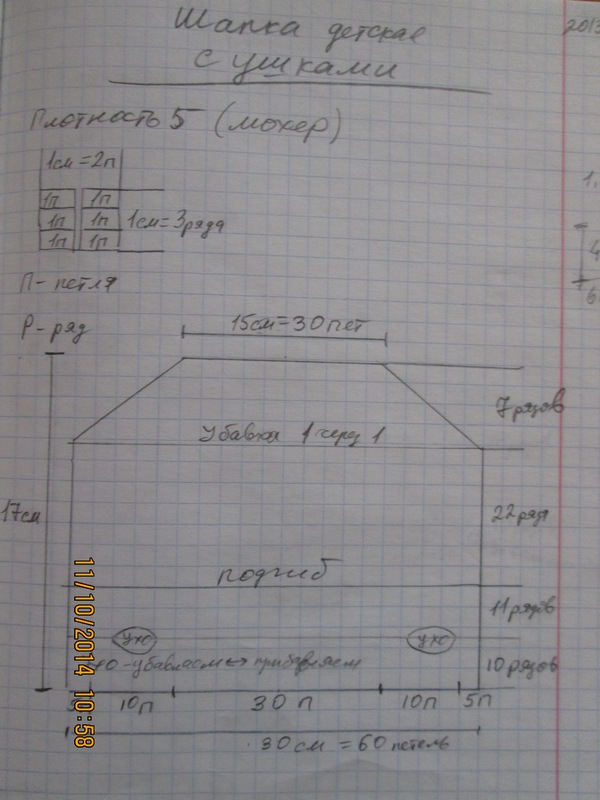 Шапка детская
с ушками
2013
Плотность 5 (мохер)
1см = 2п
1п 1п
1п 1п
1п 1п
1см = 3 ряда
П - петля
Р - ряд
15см = 30 пет
7 рядов
Убавки 1 через 1
17см
22 ряда
подгиб
11 рядов
ухо ухо
убавляем ↔ прибавляем
10 рядов
10п 30 п 10п 5п
30 см = 60 петель
11/10/2014 10:58